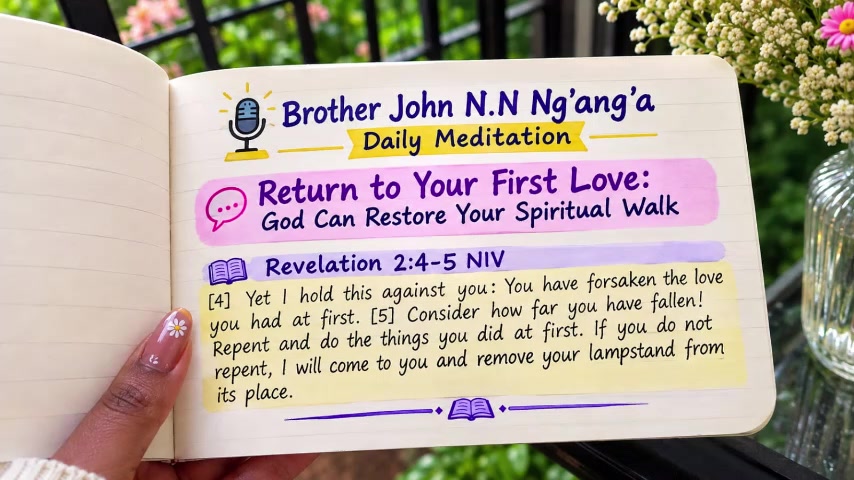 Brother John N.N Ng'ang'a
Daily Meditation
Return to Your First Love:
God Can Restore Your Spiritual Walk
Revelation 2:4-5 NIV
[4] Yet I hold this against you: You have forsaken the love
you had at first. [5] Consider how far you have fallen!
Repent and do the things you did at first. If you do not
repent, I will come to you and remove your lampstand from
its place.